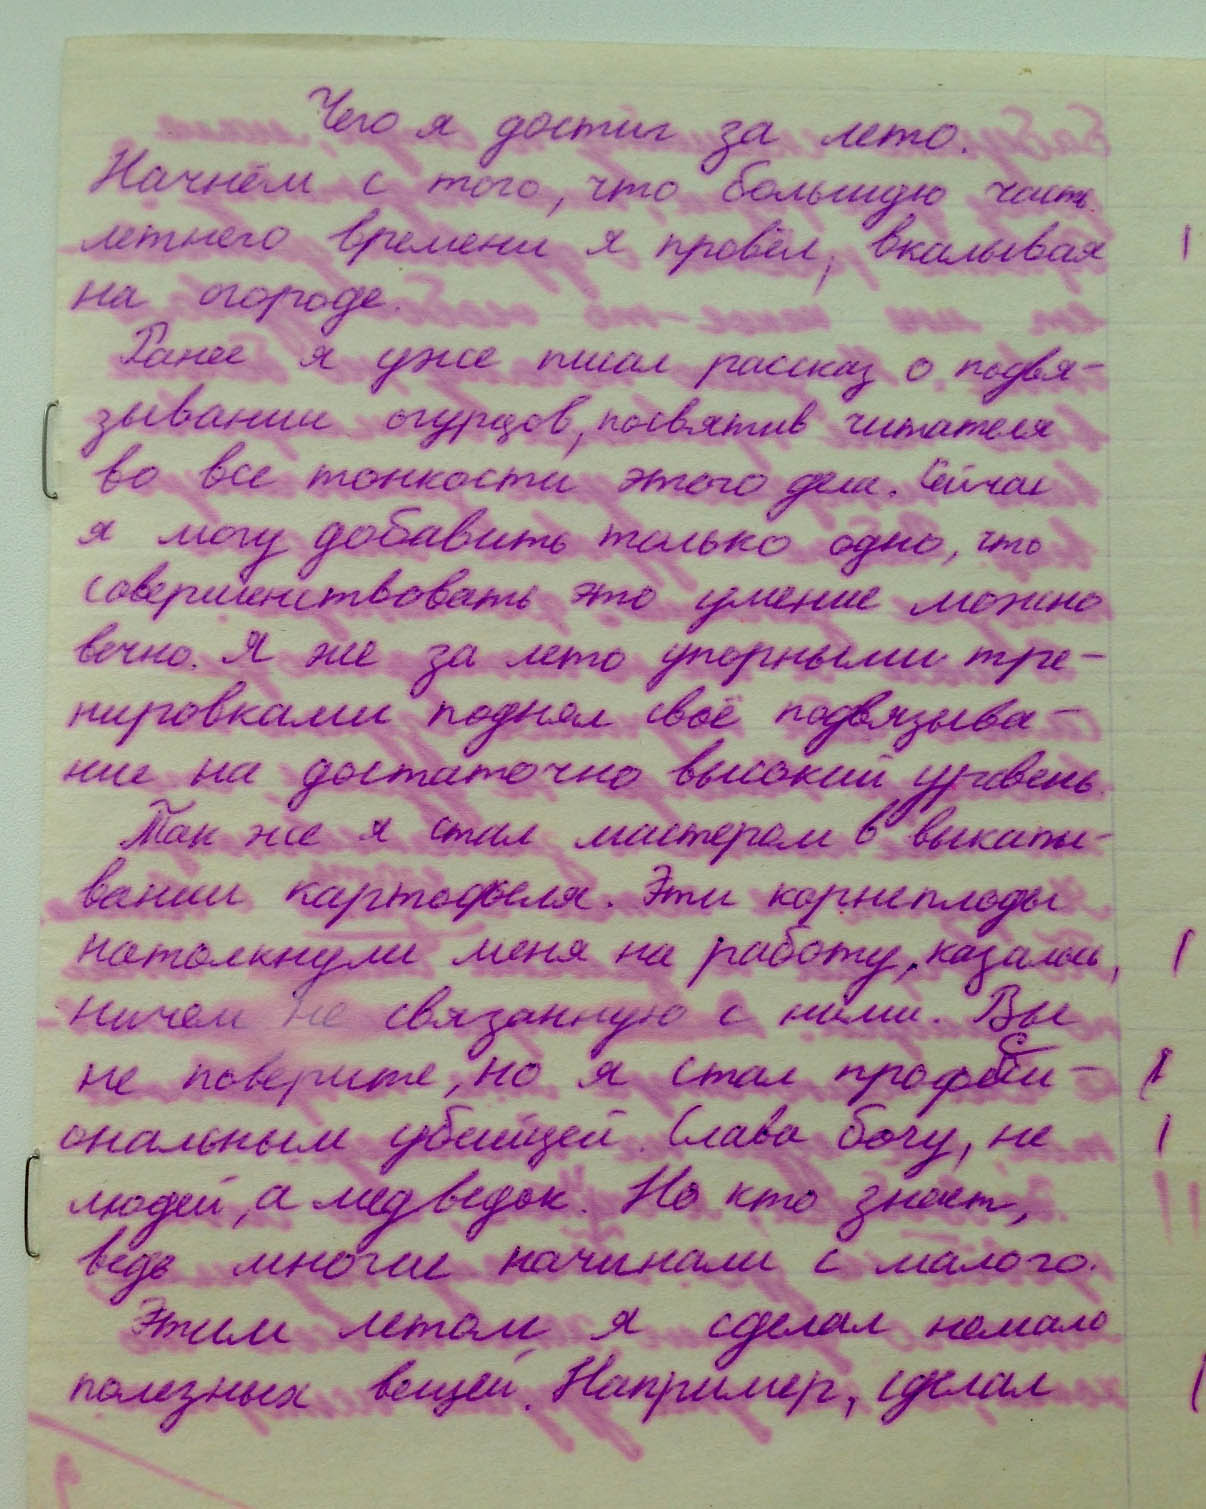 Чего я достиг за лето.
Начнём с того, что большую часть
летнего времени я провёл, вкалывая
на огороде.
Ранее я уже писал рассказ о подвя-
зывании огурцов, посвятив читателя
во все тонкости этого дела. Сейчас
я могу добавить только одно, что
совершенствовать это умение можно
вечно. Я же за лето упорными тре-
нировками поднял своё подвязыва-
ние на достаточно высокий уровень.
Так же я стал мастером в выкапы-
вании картофеля. Эти корнеплоды
натолкнули меня на работу, казалось,
ничем не связанную с ними. Вы
не поверите, но я стал професси-
ональным убийцей. Слава богу, не
людей, а медведок. Но кто знает,
ведь многие начинали с малого.
Этим летом я сделал немало
полезных вещей. Например, сделал